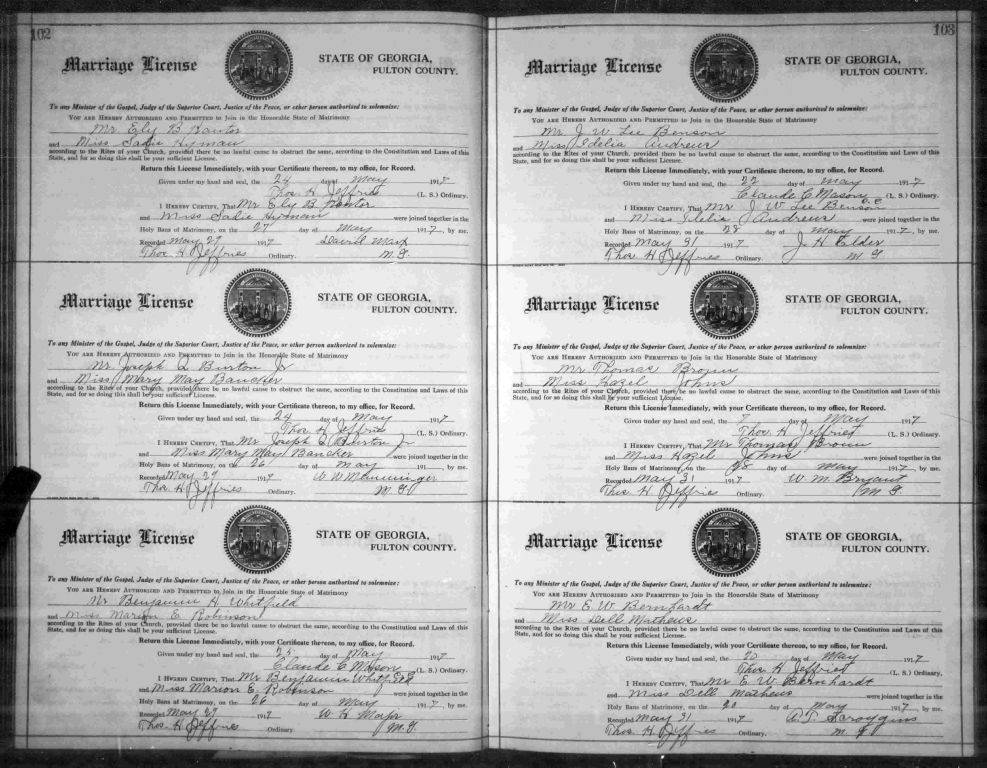 102
Marriage License
STATE OF GEORGIA,
FULTON COUNTY.
To any Minister of the Gospel, Judge of the Superior Court, Justice of the Peace, or other person authorized to solemnize:
YOU ARE HEREBY AUTHORIZED AND PERMITTED to Join in the Honorable State of Matrimony
Mr Ely B Kantor
and Miss Sadie Hyman
according to the Rites of your Church, provided there be no lawful cause to obstruct the same, according to the Constitution and Laws of this
State, and for so doing this shall be your sufficient License.
Return this License Immediately, with your Certificate thereon, to my office, for Record.
Given under my hand and seal, the 24 day of May 1917
Thos H Jeffries (L. S.) Ordinary.
I HEREBY CERTIFY, That Mr Ely B Kantor
and Miss Sadie Hyman were joined together in the
Holy Bans of Matrimony, on the 27 day of May 1917, by me.
Recorded May 29 1917 David Marx
Thos H Jeffries Ordinary. M. G.
Marriage License
STATE OF GEORGIA,
FULTON COUNTY.
To any Minister of the Gospel, Judge of the Superior Court, Justice of the Peace, or other person authorized to solemnize:
YOU ARE HEREBY AUTHORIZED AND PERMITTED to Join in the Honorable State of Matrimony
Mr Joseph Burton Jr
and Miss Mary May Bancker
according to the Rites of your Church, provided there be no lawful cause to obstruct the same, according to the Constitution and Laws of this
State, and for so doing this shall be your sufficient License.
Return this License Immediately, with your Certificate thereon, to my office, for Record.
Given under my hand and seal, the 24 day of May 1917
Thos H Jeffries (L. S.) Ordinary.
I HEREBY CERTIFY, That Mr Joseph Burton Jr
and Miss Mary May Bancker were joined together in the
Holy Bans of Matrimony, on the 26 day of May 191 , by me.
Recorded May 29 1917 W W Memminger
Thos H Jeffries Ordinary. M. G.
Marriage License
STATE OF GEORGIA,
FULTON COUNTY.
To any Minister of the Gospel, Judge of the Superior Court, Justice of the Peace, or other person authorized to solemnize:
YOU ARE HEREBY AUTHORIZED AND PERMITTED to Join in the Honorable State of Matrimony
Mr Benjamin H Whitfield
and Miss Marion E Robinson
according to the Rites of your Church, provided there be no lawful cause to obstruct the same, according to the Constitution and Laws of this
State, and for so doing this shall be your sufficient License.
Return this License Immediately, with your Certificate thereon, to my office, for Record.
Given under my hand and seal, the 25 day of May 1917
Claude C Mason (L. S.) Ordinary.
I HEREBY CERTIFY, That Mr Benjamin Whitfield
and Miss Marion E. Robinson were joined together in the
Holy Bans of Matrimony, on the 26 day of May 1917, by me.
Recorded May 29 1917 W H Major
Thos H Jeffries Ordinary. M. G.
103
Marriage License
STATE OF GEORGIA,
FULTON COUNTY.
To any Minister of the Gospel, Judge of the Superior Court, Justice of the Peace, or other person authorized to solemnize:
YOU ARE HEREBY AUTHORIZED AND PERMITTED to Join in the Honorable State of Matrimony
Mr J W Lee Benson
and Miss Idelia Andrews
according to the Rites of your Church, provided there be no lawful cause to obstruct the same, according to the Constitution and Laws of this
State, and for so doing this shall be your sufficient License.
Return this License Immediately, with your Certificate thereon, to my office, for Record.
Given under my hand and seal, the 22 day of May 1917
Claude C Mason (L. S.) Ordinary.
I HEREBY CERTIFY, That Mr J W Lee Benson
and Miss Idelia Andrews were joined together in the
Holy Bans of Matrimony, on the 28 day of May 1917, by me.
Recorded May 31 1917 J H Elder
Thos H Jeffries Ordinary. M G
Marriage License
STATE OF GEORGIA,
FULTON COUNTY.
To any Minister of the Gospel, Judge of the Superior Court, Justice of the Peace, or other person authorized to solemnize:
YOU ARE HEREBY AUTHORIZED AND PERMITTED to Join in the Honorable State of Matrimony
Mr Thomas Brown
and Miss Hazel Johns
according to the Rites of your Church, provided there be no lawful cause to obstruct the same, according to the Constitution and Laws of this
State, and for so doing this shall be your sufficient License.
Return this License Immediately, with your Certificate thereon, to my office, for Record.
Given under my hand and seal, the 7 day of May 1917
Thos H Jeffries (L. S.) Ordinary.
I HEREBY CERTIFY, That Mr Thomas Brown
and Miss Hazel Johns were joined together in the
Holy Bans of Matrimony, on the 28 day of May 1917, by me.
Recorded May 31 1917 W M Bryant
Thos H Jeffries Ordinary. M G
Marriage License
STATE OF GEORGIA,
FULTON COUNTY.
To any Minister of the Gospel, Judge of the Superior Court, Justice of the Peace, or other person authorized to solemnize:
YOU ARE HEREBY AUTHORIZED AND PERMITTED to Join in the Honorable State of Matrimony
Mr E W Bernhardt
and Miss Dell Mathews
according to the Rites of your Church, provided there be no lawful cause to obstruct the same, according to the Constitution and Laws of this
State, and for so doing this shall be your sufficient License.
Return this License Immediately, with your Certificate thereon, to my office, for Record.
Given under my hand and seal, the day of May 1917
Thos H Jeffries (L. S.) Ordinary.
I HEREBY CERTIFY, That Mr E W Bernhardt
and Miss Dell Mathews were joined together in the
Holy Bans of Matrimony, on the 20 day of May 1917, by me.
Recorded May 31 1917 Scroggins
Thos H Jeffries Ordinary. M G